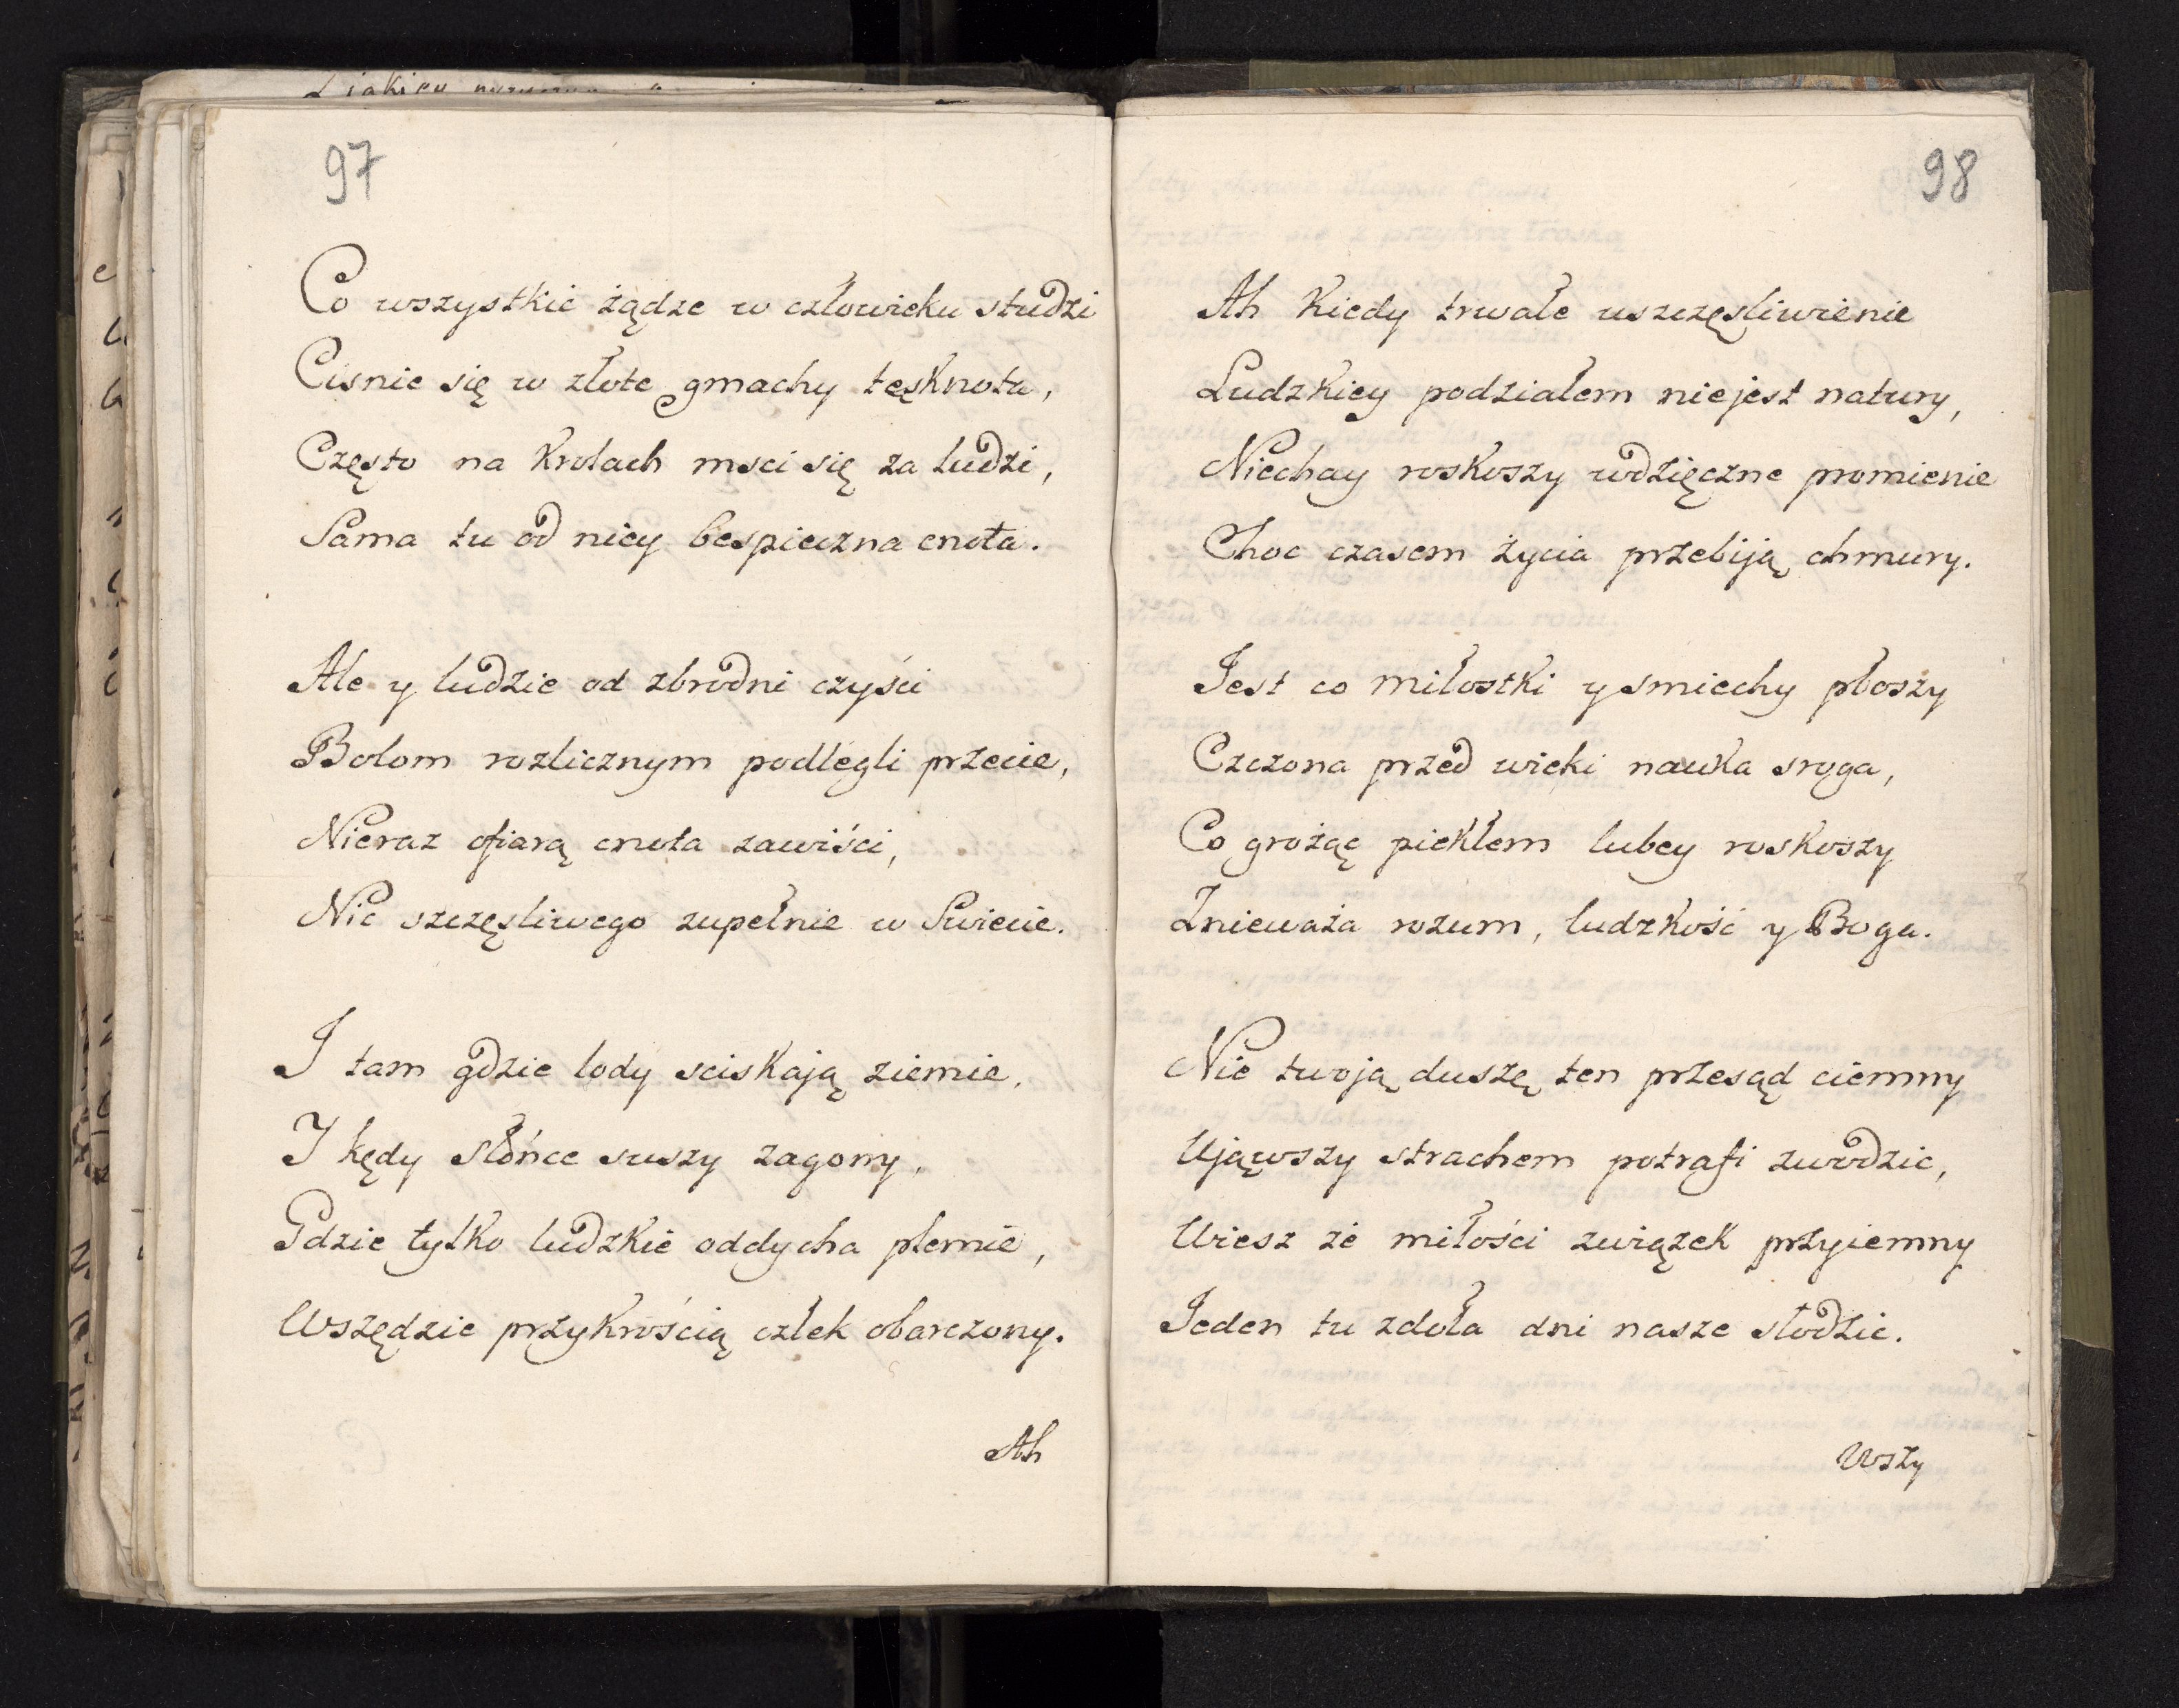 97
Co wszystkie żądze w człowieku studzi
Cisnie się w złote gmachy tęsknota,
Często na Krolach msci się za ludzi,
Sama tu od niey bespieczna cnota.
Ale y ludzie od zbrodni czyści
Bolom rozlicznym podlegli przecie,
Nieraz ofiarą cnota zawiści,
Nic szczęsliwego zupełnie w Swiecie.
I tam gdzie lody sciskają ziemie,
I kędy słońce suszy zagony,
Gdzie tylko ludzkie oddycha plemie,
Wszędzie przykrością człek obarczony.
Ah
98
Ah Kiedy trwałe uszczęsliwienie
Ludzkiey podziałem niejest natury,
Niechay roskoszy wdzięczne promienie
Choc czasem życia przebiją chmury.
Jest co miłostki y smiechy płoszy
Czczona przed wieki nauka sroga,
Co grożąc piekłem lubey roskoszy
Znieważa rozum, ludzkość y Boga.
Nie twoją duszę ten przesąd ciemny
Ująwszy strachem potrafi zwodzic,
Wiesz że miłości związek przyiemny
Jeden tu zdoła dni nasze słodzic.
Wszy